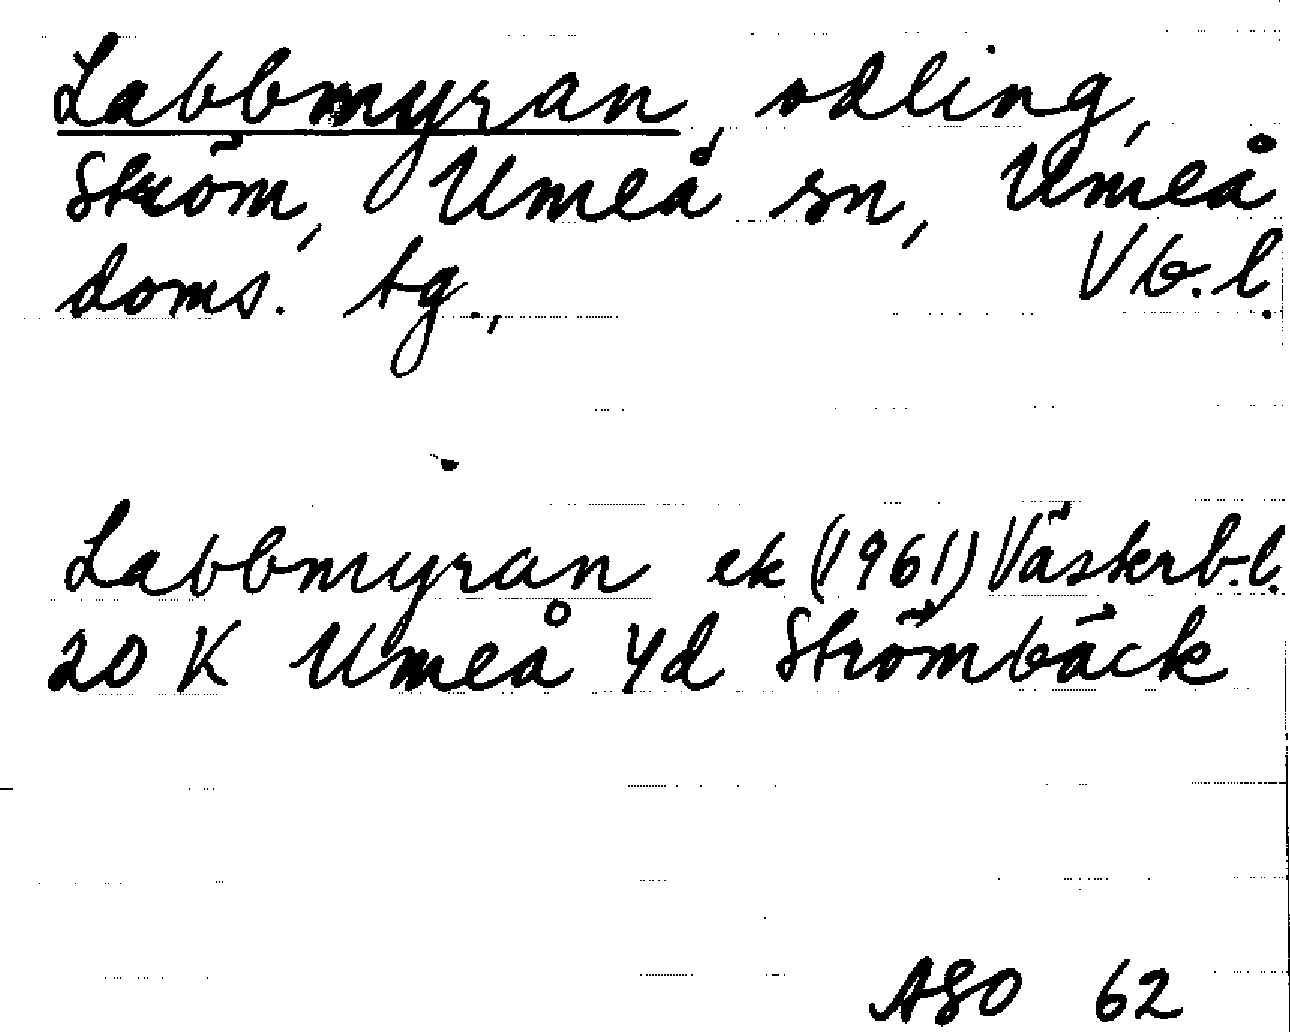 Labbmyran, odling,
Ström, Umeå sn, Umeå
doms. tg., Vb.l.
Labbmyran ek (1961) Västerb.l.
20 K Umeå 4d Strömbäck
ASO 62